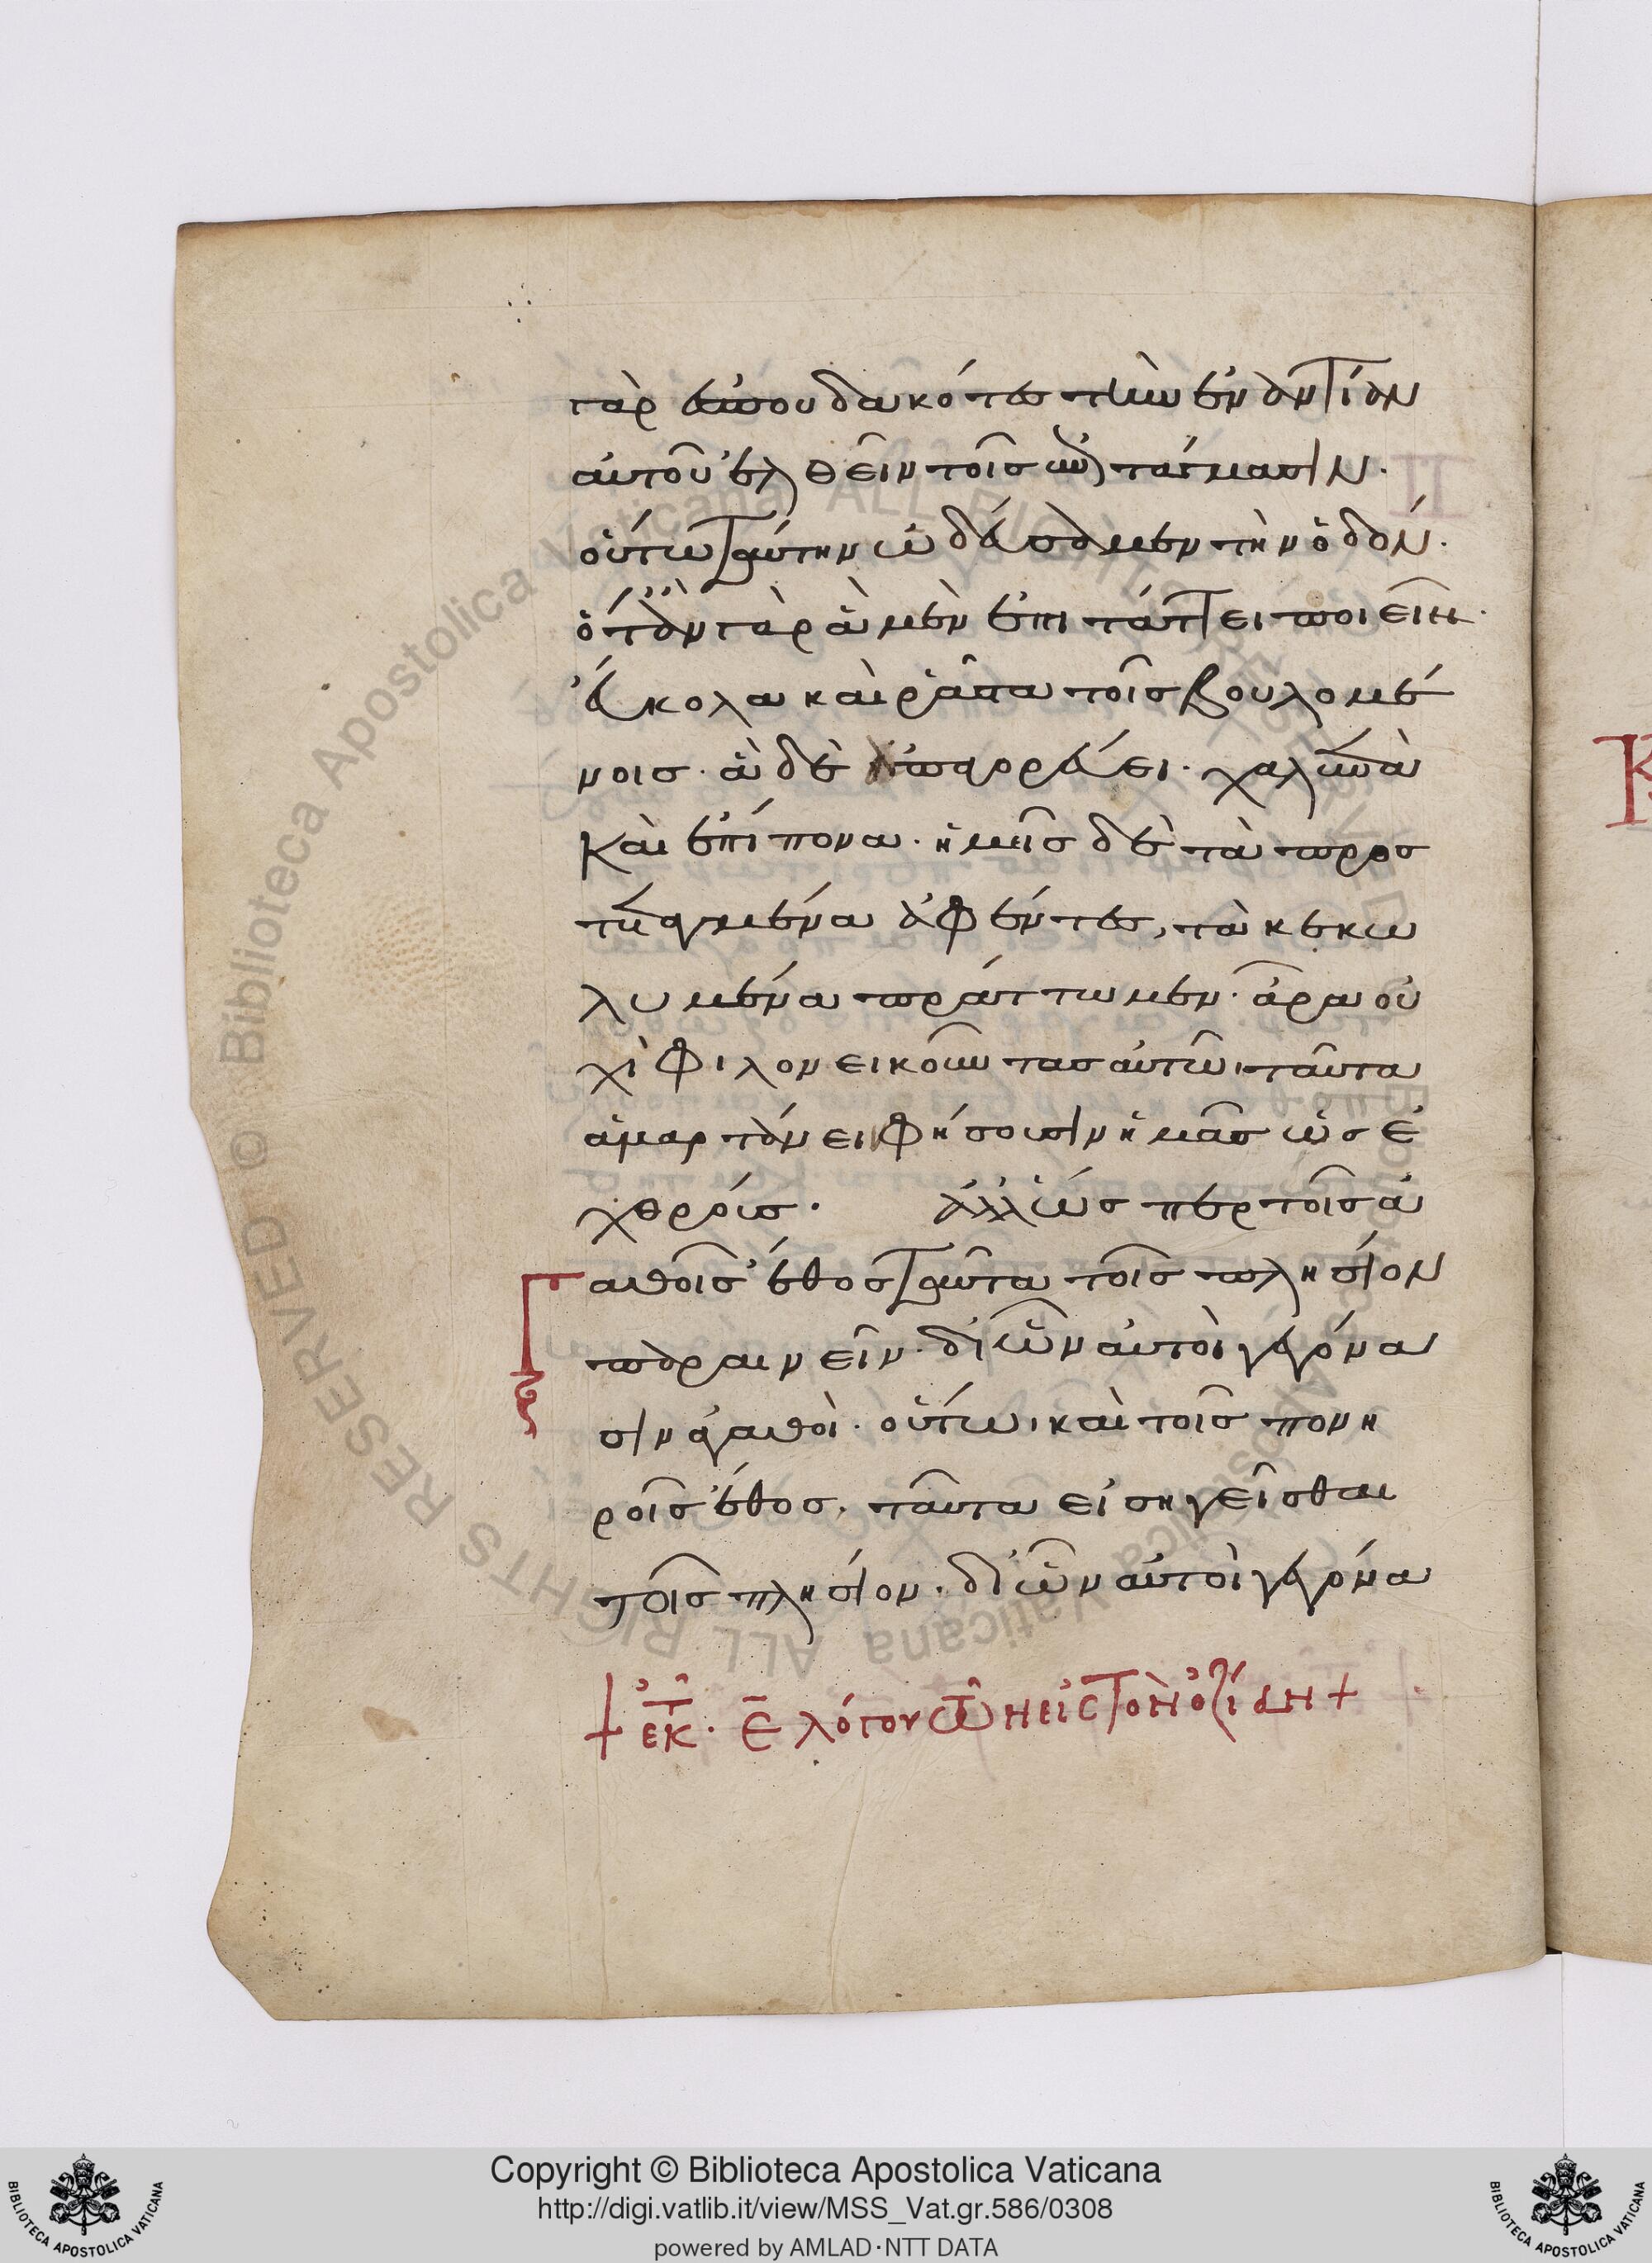 γὰρ ἐσπουδακότες τὴν ἐναντίαν
αὐτοῦ ἐλθεῖν τοῖς ἐπιτάγμασιν.
οὕτω ταύτην ὡδεύσαμεν τὴν ὁδόν.
ὅταν γὰρ ἃ μὲν ἐπιτάττει ποιεῖν.
εὔκολα καὶ ῥᾶστα τοῖς βουλομέ
νοις. ἃ δὲ ἀπαγορεύει. χαλεπὰ
καὶ ἐπίπονα. ἡμεῖς δὲ τὰ προσ
τεταγμένα ἀφέντες, τὰ κεκω
λυμένα πράττωμεν. ἆρα οὐ
χὶ φιλονεικοῦντας αὐτῶ, ταῦτα
ἁμαρτάνειν φήσουσιν ἡμᾶς ὡς ἐ
χθρούς. ἀλλ' ὥσπερ τοῖς ἀ
γαθοῖς ἔθος ταῦτα τοῖς πλησίον
παραινεῖν. δι' ὧν αὐτοὶ γεγόνα
σιν ἀγαθοί. οὕτω, καὶ τοῖς πονη
ροῖς ἔθος, ταῦτα εἰσηγεῖσθαι
τοῖς πλησίον. δι' ὧν αὐτοὶ γεγόνα
+ ἐκ τ. ε λόγου τῶν εἰς τὸν ὀζίαν +
Copyright © Biblioteca Apostolica Vaticana
http://digi.vatlib.it/view/MSS_Vat.gr.586/0308
powered by AMLAD·NTT DATA
BIBLIOTECA APOSTOLICA VATICANA
BIBLIOTECA APOSTOLICA VATICANA